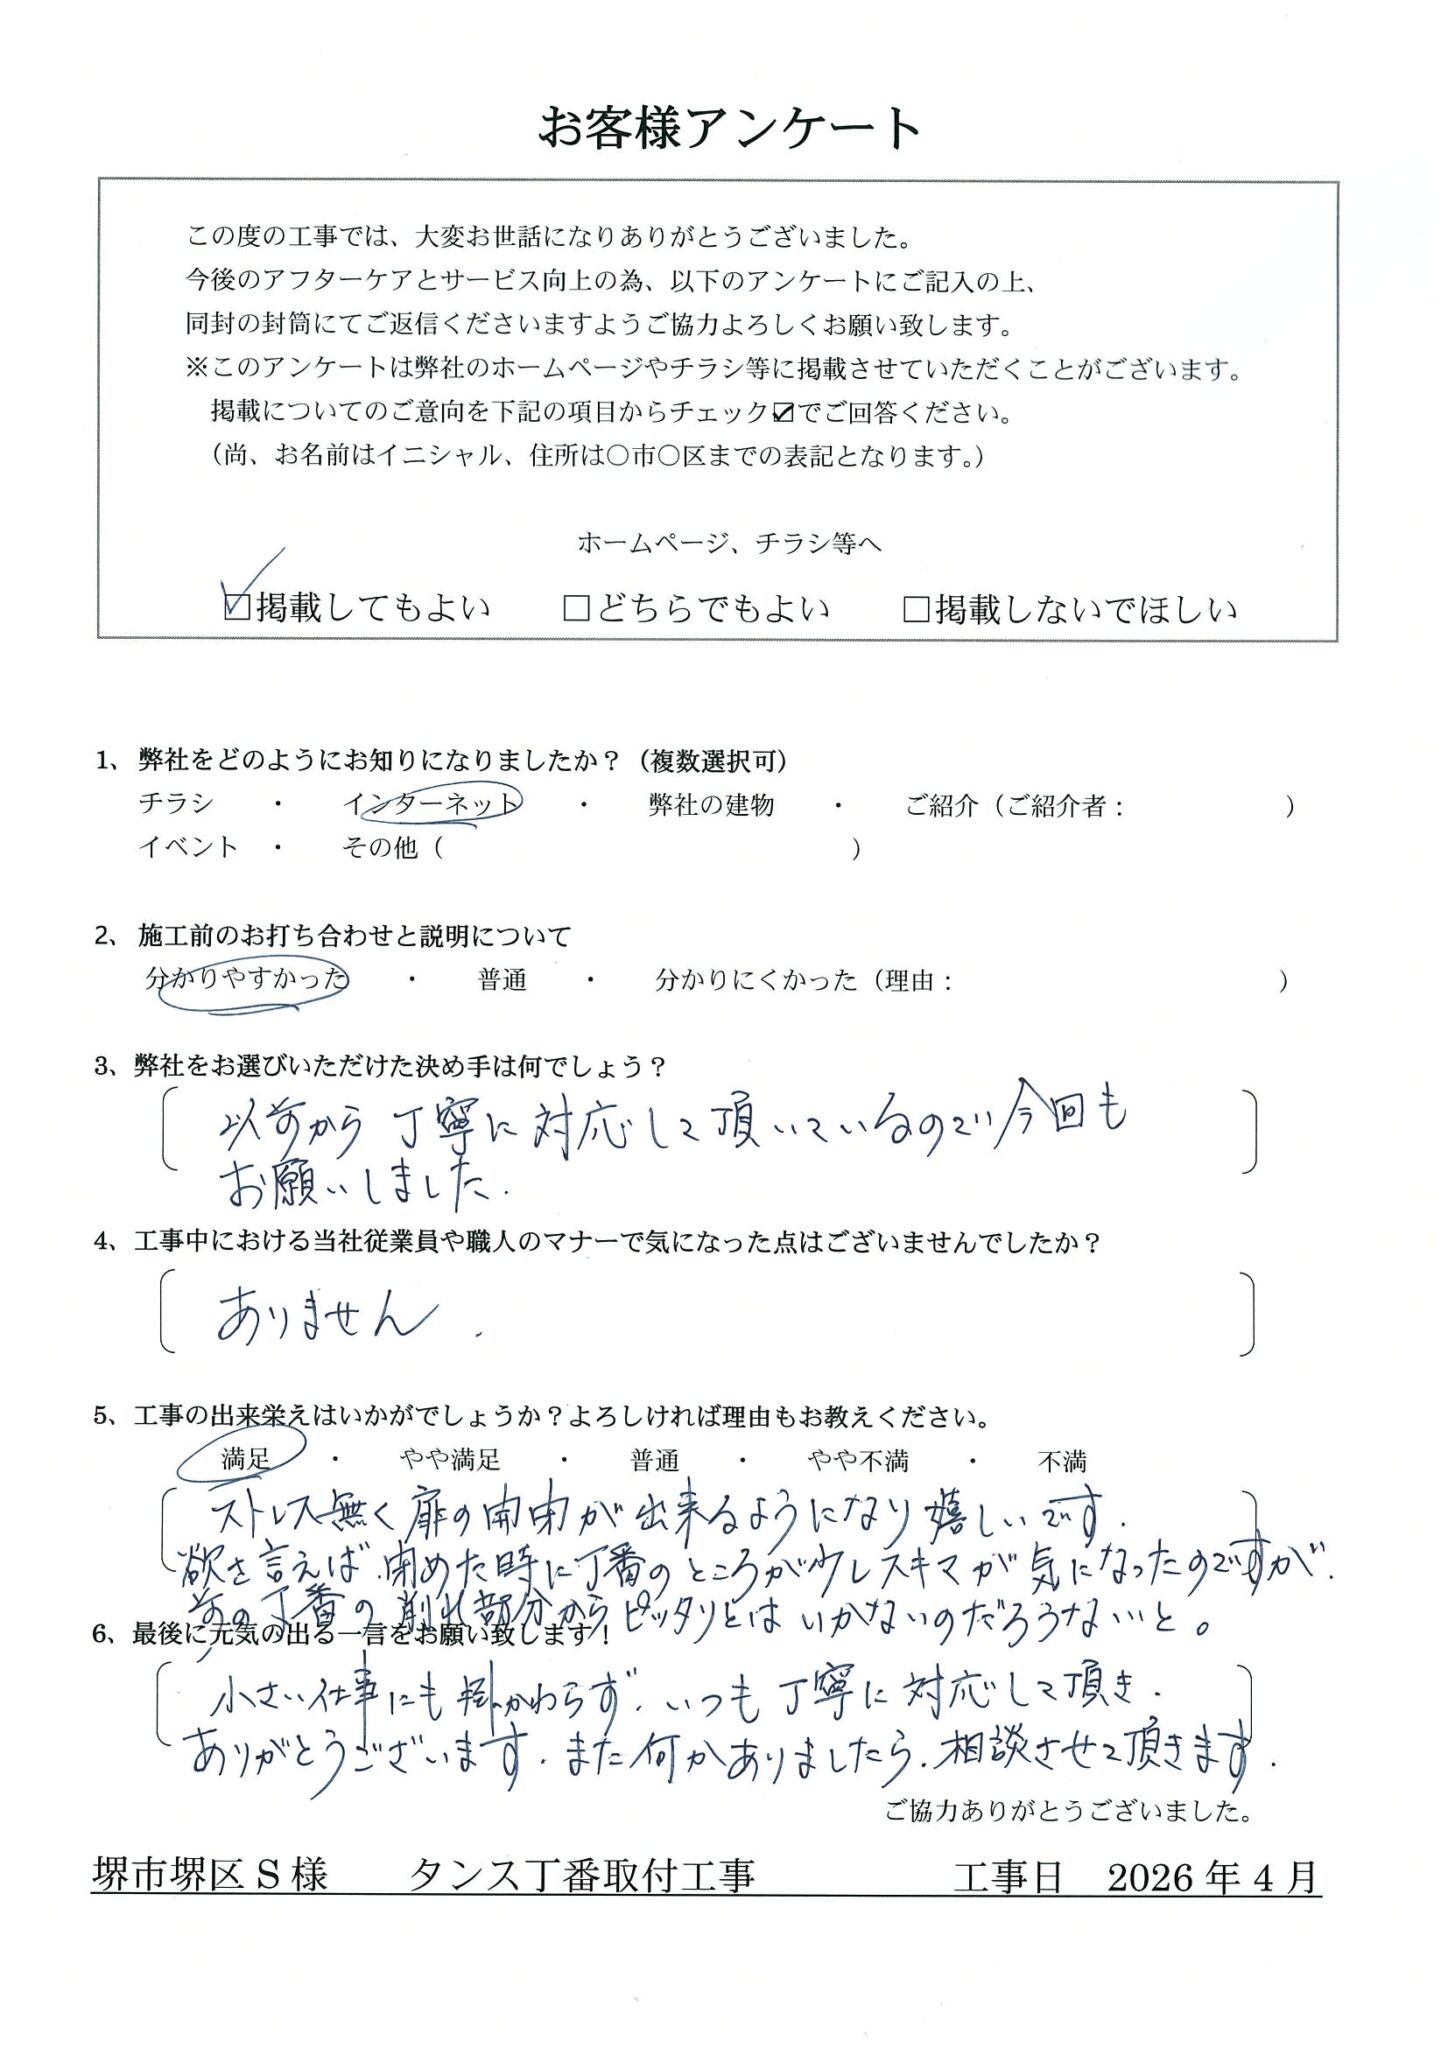 お客様アンケート
この度の工事では、大変お世話になりありがとうございました。
今後のアフターケアとサービス向上の為、以下のアンケートにご記入の上、
同封の封筒にてご返信くださいますようご協力よろしくお願い致します。
※このアンケートは弊社のホームページやチラシ等に掲載させていただくことがございます。
掲載についてのご意向を下記の項目からチェック☑でご回答ください。
（尚、お名前はイニシャル、住所は〇市〇区までの表記となります。）
ホームページ、チラシ等へ
☑掲載してもよい □どちらでもよい □掲載しないでほしい
1、弊社をどのようにお知りになりましたか？（複数選択可）
チラシ ・ インターネット ・ 弊社の建物 ・ ご紹介（ご紹介者： ）
イベント ・ その他（ ）
2、施工前のお打ち合わせと説明について
分かりやすかった ・ 普通 ・ 分かりにくかった（理由： ）
3、弊社をお選びいただけた決め手は何でしょう？
以前から丁寧に対応して頂いているので今回も
お願いしました.
4、工事中における当社従業員や職人のマナーで気になった点はございませんでしたか？
ありません.
5、工事の出来栄えはいかがでしょうか？よろしければ理由もお教えください。
満足 ・ やや満足 ・ 普通 ・ やや不満 ・ 不満
ストレス無く扉の開閉が出来るようになり嬉しいです.
欲を言えば.閉めた時に丁番のところが少しスキマが気になったのですが.
前の丁番の削れ部分からピッタリとはいかないのだろうな…と。
6、最後に元気の出る一言をお願い致します！
小さい仕事にも掛かわらず.いつも丁寧に対応して頂き.
ありがとうございます.また何かありましたら.相談させて頂きます.
ご協力ありがとうございました。
堺市堺区 S 様 タンス丁番取付工事 工事日 2026 年 4 月